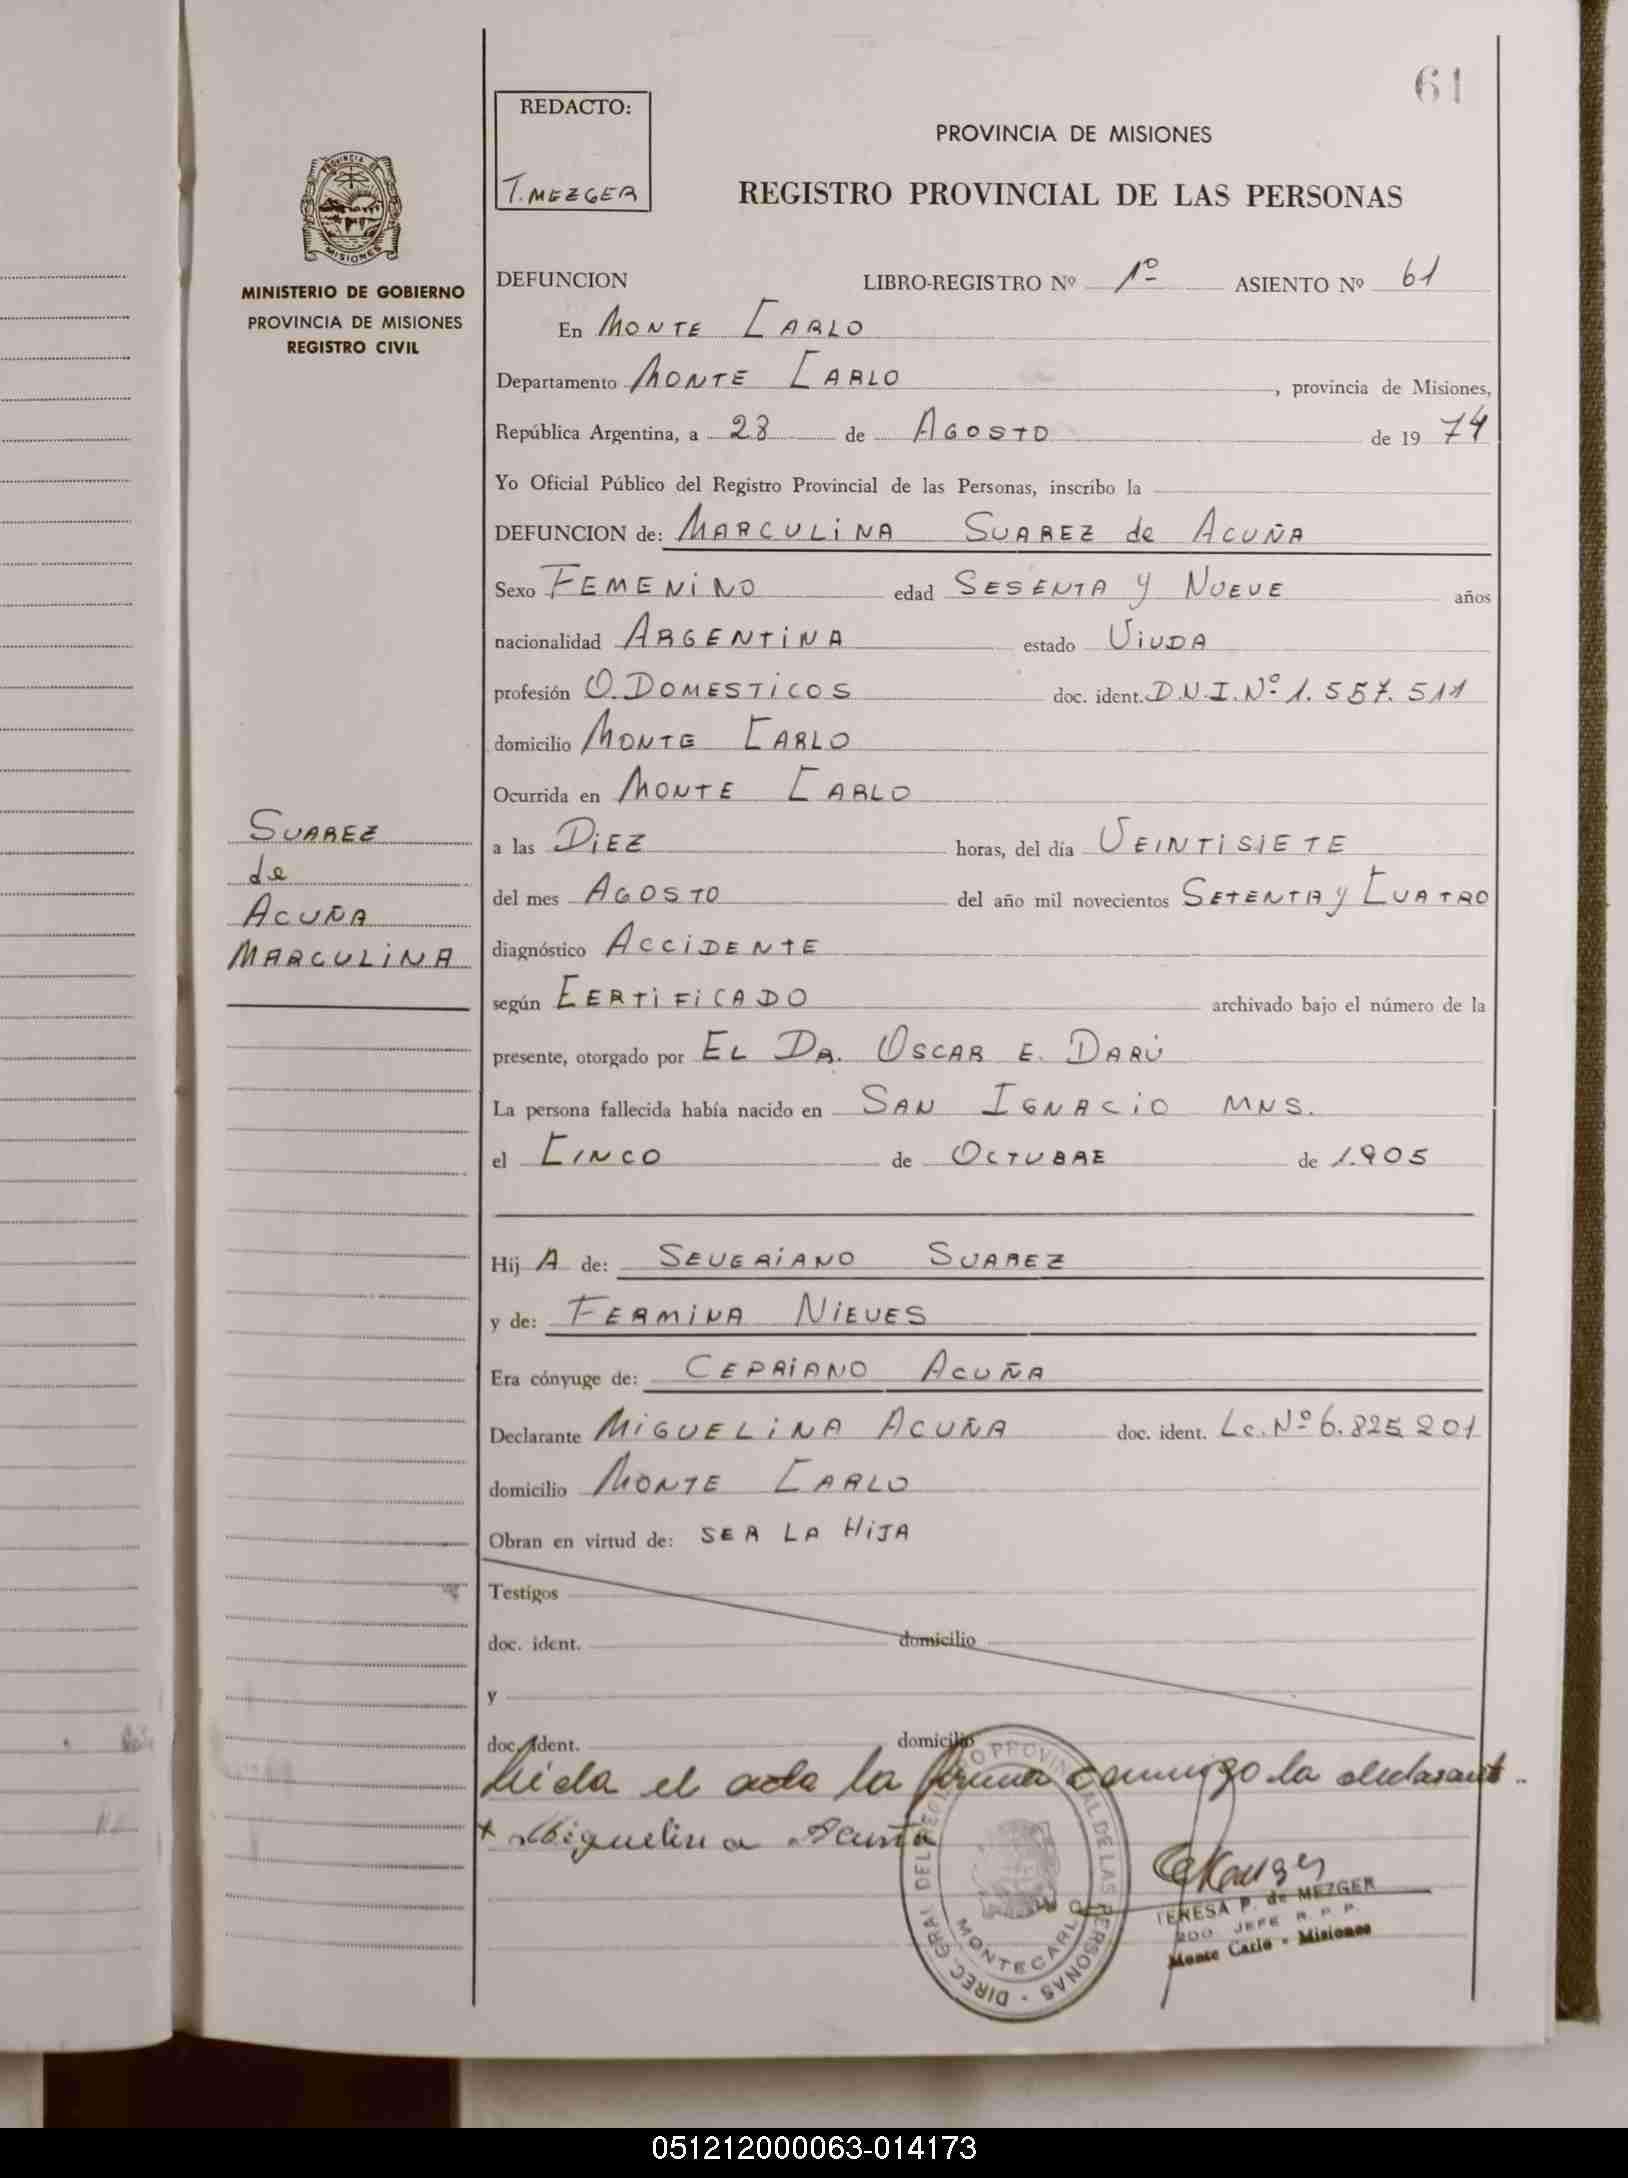 61
REDACTO:
T. MEZGER
PROVINCIA DE MISIONES
REGISTRO PROVINCIAL DE LAS PERSONAS
PROVINCIA DE
MISIONES
MINISTERIO DE GOBIERNO
PROVINCIA DE MISIONES
REGISTRO CIVIL
DEFUNCION LIBRO-REGISTRO Nº 1º ASIENTO Nº 61
En MONTE CARLO
Departamento MONTE CARLO, provincia de Misiones,
República Argentina, a 28 de AGOSTO de 19 74
Yo Oficial Público del Registro Provincial de las Personas, inscribo la
DEFUNCION de: MARCULINA SUAREZ de ACUÑA
Sexo FEMENINO edad SESENTA y NUEVE años
nacionalidad ARGENTINA estado VIUDA
profesión Q. DOMESTICOS doc. ident. D.N.I. Nº 1.557.511
domicilio MONTE CARLO
Ocurrida en MONTE CARLO
a las DIEZ horas, del día VEINTISIETE
del mes AGOSTO del año mil novecientos SETENTA y CUATRO
diagnóstico ACCIDENTE
según CERTIFICADO archivado bajo el número de la
presente, otorgado por EL DR. OSCAR E. DARÚ
La persona fallecida había nacido en SAN IGNACIO MNS.
el CINCO de OCTUBRE de 1.905
SUAREZ
de
ACUÑA
MARCULINA
Hij A de: SEVERIANO SUAREZ
y de: FERMINA NIEVES
Era cónyuge de: CEPRIANO ACUÑA
Declarante MIGUELINA ACUÑA doc. ident. Lc. Nº 6.825.201
domicilio MONTE CARLO
Obran en virtud de: SER LA HIJA
Testigos
doc. ident. domicilio
y
doc. ident. domicilio
Leida el acta la firma conmigo la declarante.
x Miguelina Acuña
DIREC. GRAL DEL REGISTRO PROVINCIAL DE LAS PERSONAS
MONTECARLO
TERESA P. de MEZGER
2DO. JEFE R. P. P.
Monte Carlo - Misiones
051212000063-014173